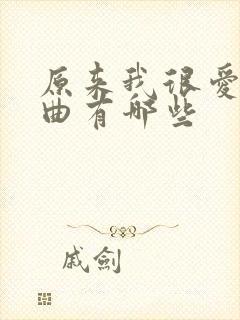 原来我很爱
曲有哪些
戚劍